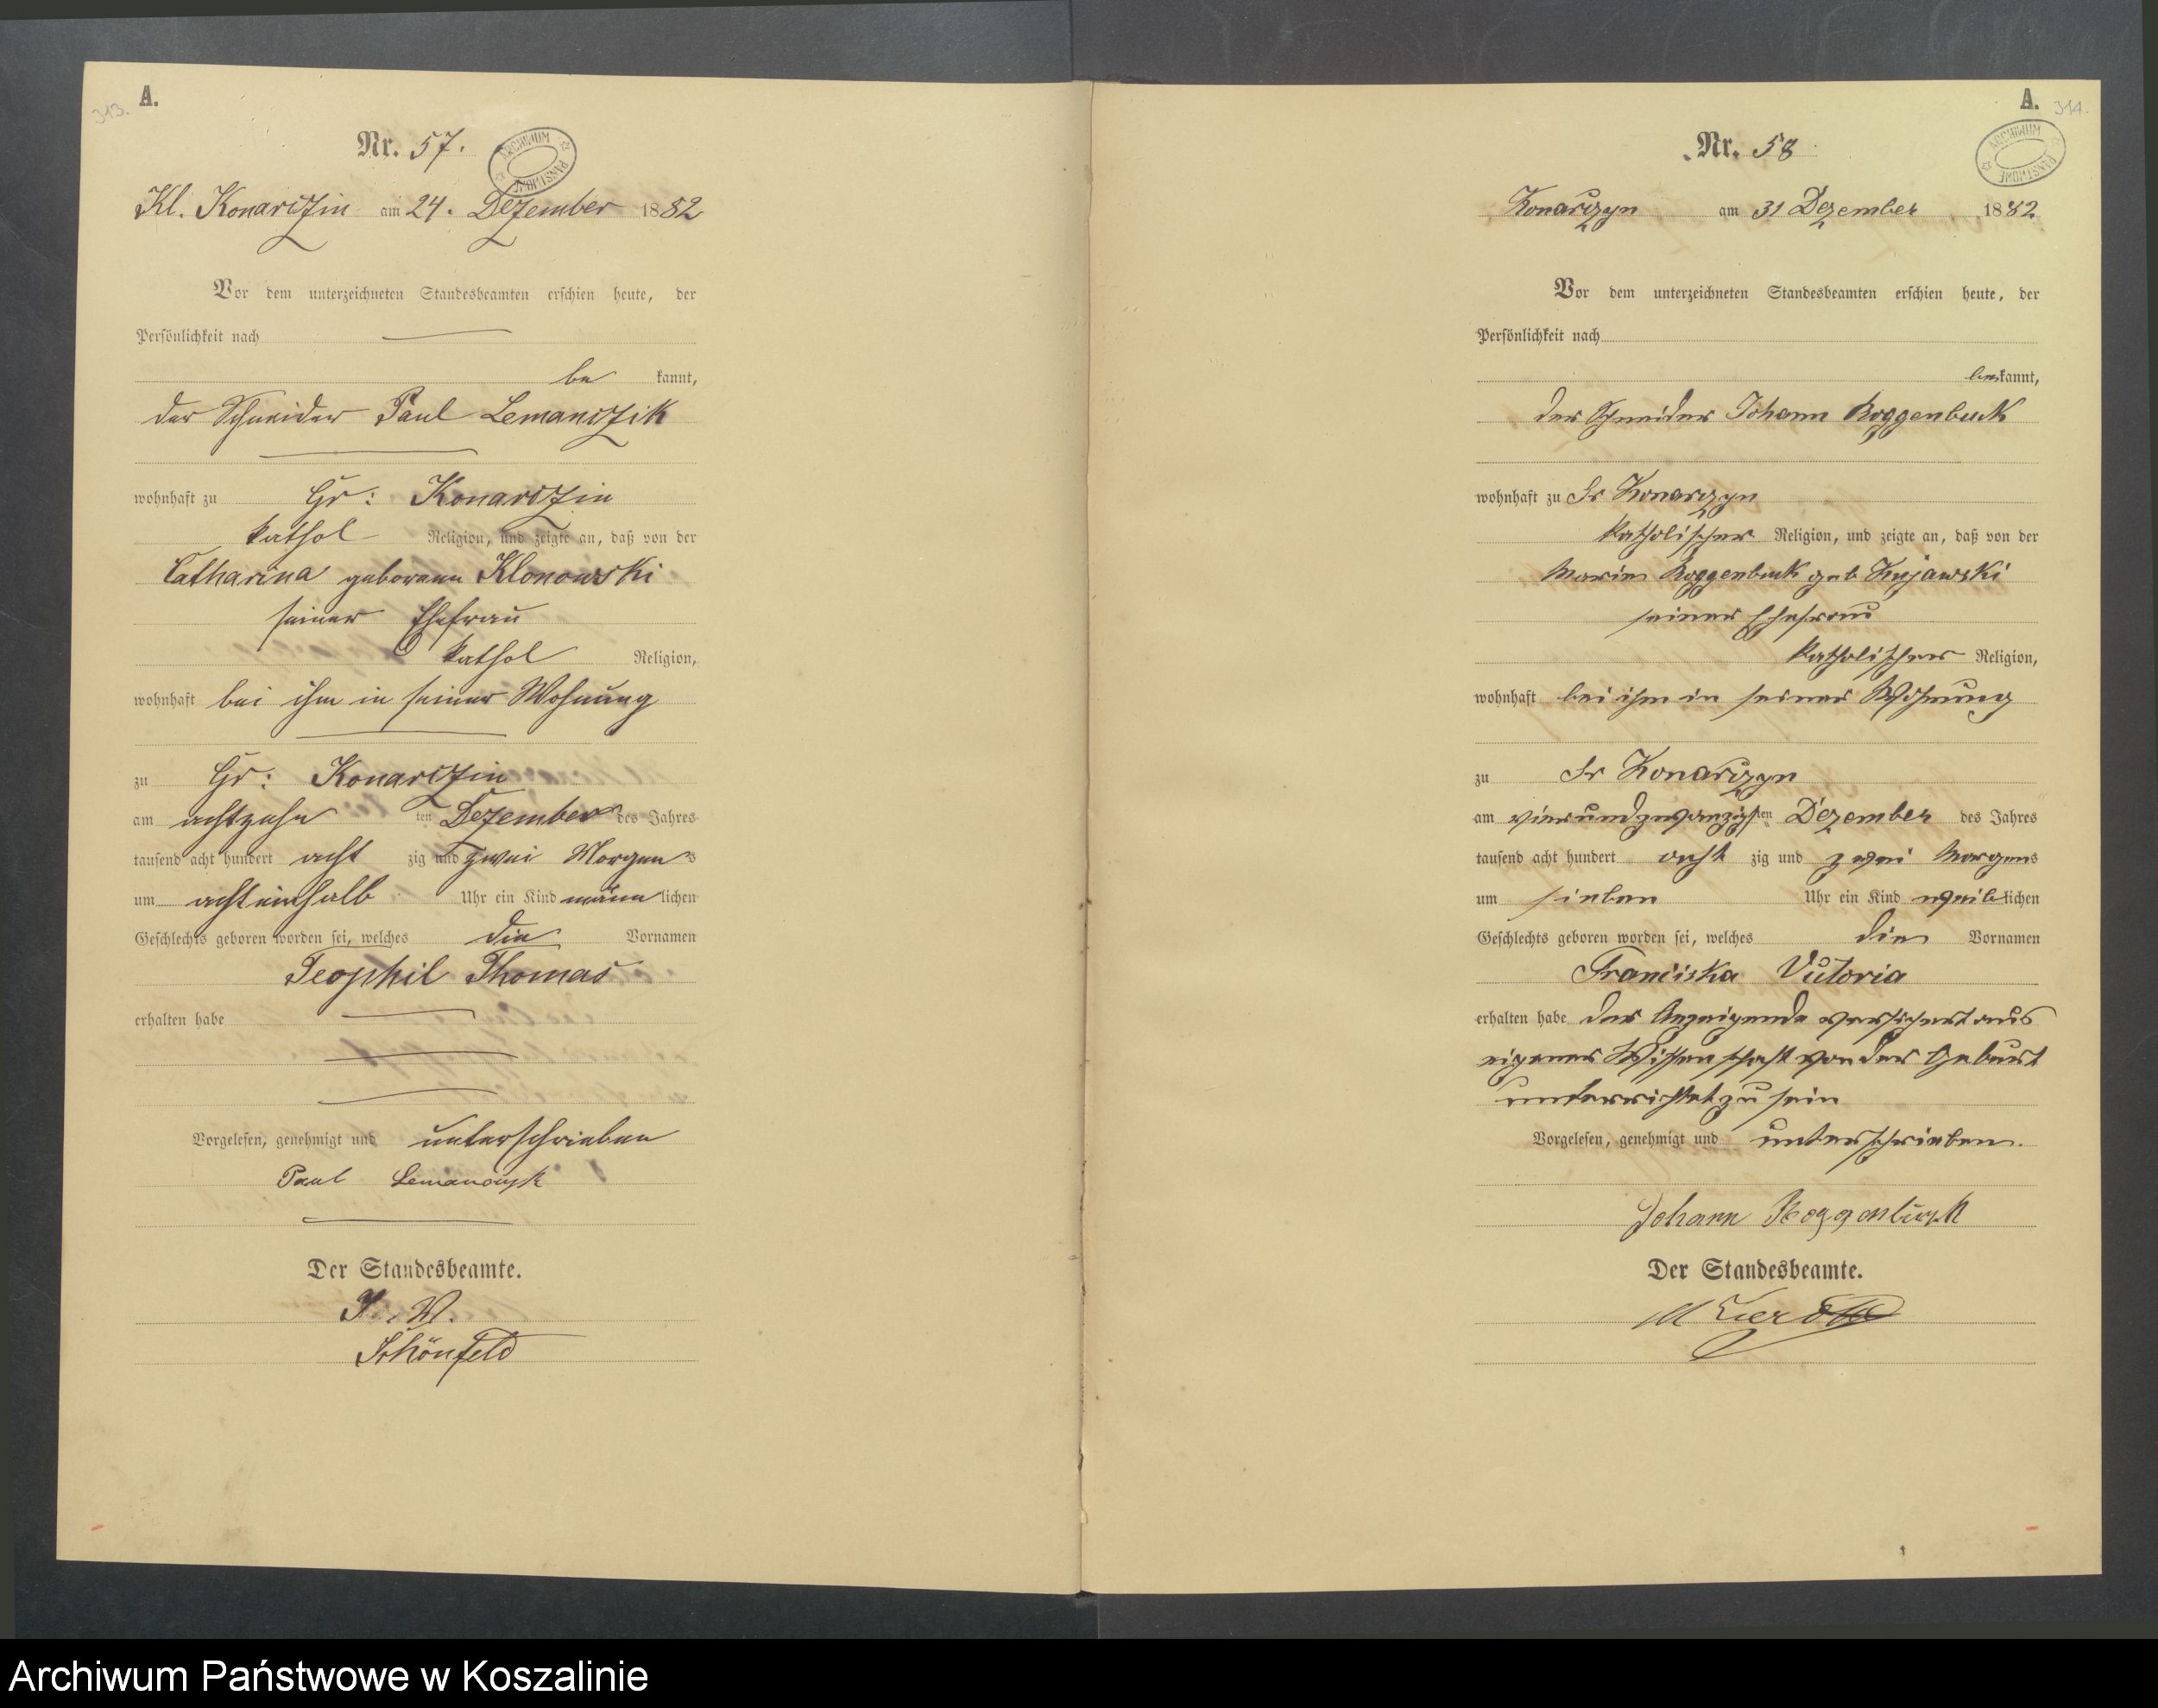 313. A.
Nr. 57.
ARCHIWUM PAŃSTWOWE
Kl. Konarczin am 24. Dezember 1882
Vor dem unterzeichneten Standesbeamten erschien heute, der
Persönlichkeit nach
be kannt,
der Schneider Paul Lemanczik
wohnhaft zu Gr: Konarczin
kathol Religion, und zeigte an, daß von der
Catharina geborenen Klonowski
seiner Ehefrau
kathol Religion,
wohnhaft bei ihm in seiner Wohnung
zu Gr: Konarczin
am achtzehn ten Dezember des Jahres
tausend acht hundert acht zig und zwei Morgens
um achteinhalb Uhr ein Kind männ lichen
Geschlechts geboren worden sei, welches die Vornamen
Teophil Thomas
erhalten habe
Vorgelesen, genehmigt und unterschrieben
Paul Lemanczyk
Der Standesbeamte.
I. W.
Schönfeld
A. 314.
Nr. 58
ARCHIWUM PAŃSTWOWE
Konarczyn am 31 Dezember 1882
Vor dem unterzeichneten Standesbeamten erschien heute, der
Persönlichkeit nach
be kannt,
der Schneider Johann Roggenbuck
wohnhaft zu Gr Konarczyn
katholischer Religion, und zeigte an, daß von der
Marie Roggenbuck geb Kujawski
seiner Ehefrau
katholischer Religion,
wohnhaft bei ihm in seiner Wohnung
zu Gr Konarczyn
am vierundzwanzigsten Dezember des Jahres
tausend acht hundert acht zig und zwei Morgens
um sieben Uhr ein Kind weiblichen
Geschlechts geboren worden sei, welches die Vornamen
Franciska Victoria
erhalten habe der Anzeigende versichert aus
eigener Wissenschaft von der Geburt
unterrichtet zu sein
Vorgelesen, genehmigt und unterschrieben.
Johann Roggenbuck
Der Standesbeamte.
Archiwum Państwowe w Koszalinie